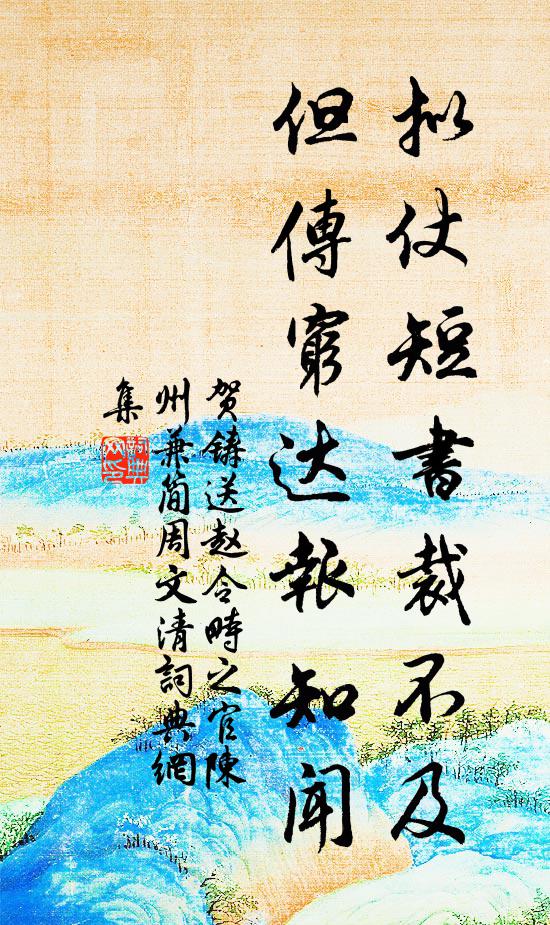 拟仗短書裁不及
但傳窮达報知闻
贺鑄送赵令畤之官陳
州兼简周文清詞典網
集